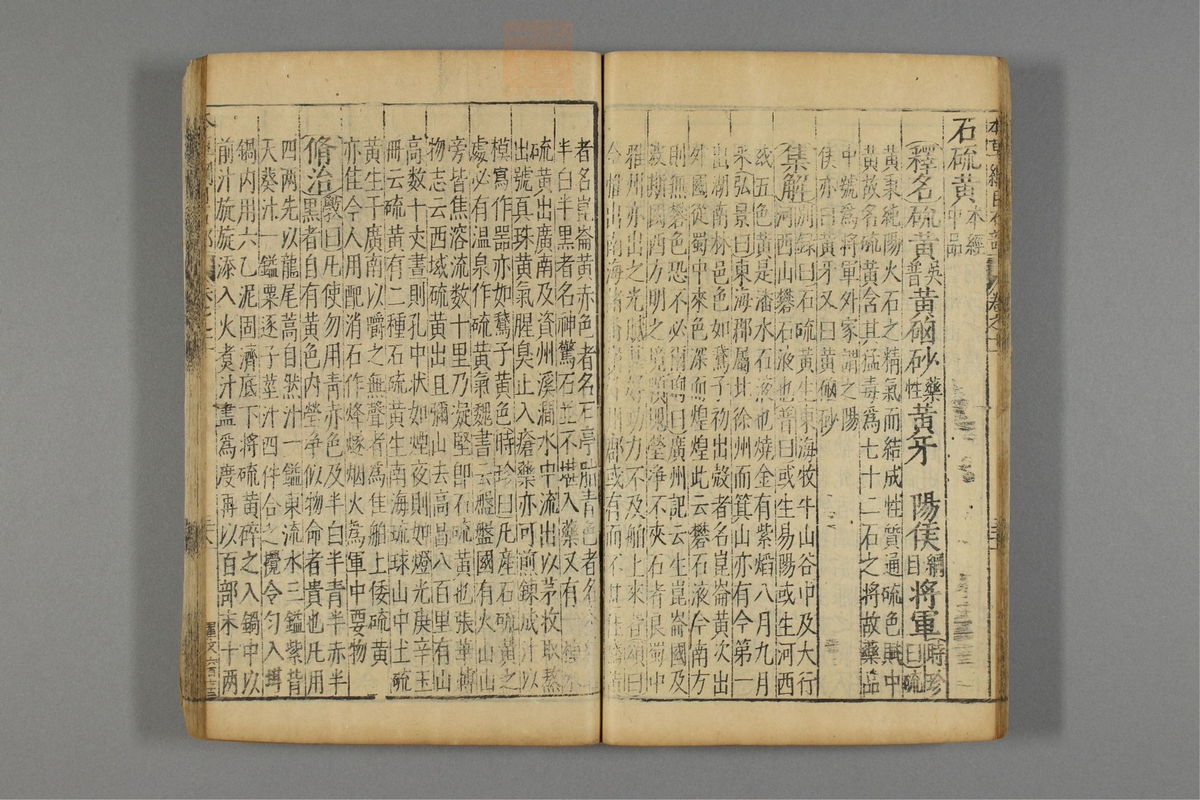 石硫黃本經中品
釋名硫黃吳普黃硇砂藥性黃牙 陽侯綱目將軍時珍曰硫
黃秉純陽火石之精氣而結成性質通硫色賦中
黃故名硫黃含其猛毒爲七十二石之將故藥品
中號爲將軍外家謂之陽
侯亦曰黃牙又曰黃硇砂
集解別錄曰石硫黃生東海牧牛山谷中及太行
河西山礬石液也普曰或生易陽或生河西
或五色黃是潘水石液也燒金有紫焰八月九月
采弘景曰東海郡屬北徐州而箕山亦有今第一
出湖南林邑色如鵞子初出殼者名崑崙黃次出
外國從蜀中來色深而煌煌此云礬石液今南方
則無礬色恐不必爾珣曰廣州記云生崑崙國及
波斯國西方明之境顆塊瑩淨不夾石者良蜀中
雅州亦出之光膩甚好功力不及舶上來者頌曰
今惟出南海諸番 州郡或有而不甚佳
者名崑崙黃赤色者名石亭脂青色者名
半白半黑者名神驚石並不堪入藥又有
硫黃出廣南及資州溪澗水中流出以茅收取熬
出號真珠黃氣腥臭止入瘡藥亦可煎鍊成汁以
模寫作器亦如鵞子黃色時珍曰凡產石硫黃之
處必有温泉作硫黃氣魏書云盤盤國有火山山
旁皆焦溶流数十里乃凝堅卽石硫黃也張華博
物志云西域硫黃出且彌山去高昌八百里有山
高数十丈晝則孔中狀如煙夜則如燈光庚辛玉
冊云硫黃有二種石硫黃生南海琉球山中土硫
黃生于廣南以嚼之無聲者爲佳舶上倭硫黃
亦佳今人用配消石作烽燧烟火爲軍中要物
脩治斅曰凡使勿用青赤色及半白半青半赤半
黑者自有黃色内瑩淨似物命者貴也凡用
四兩先以龍尾蒿自然汁一鎰東流水三鎰紫背
天葵汁一鎰粟逐子莖汁四件合之攪令勻入坩
鍋内用六乙泥固濟底下將硫黃碎之入鍋中以
前汁旋旋添入火煑汁盡爲度再以百部末十兩